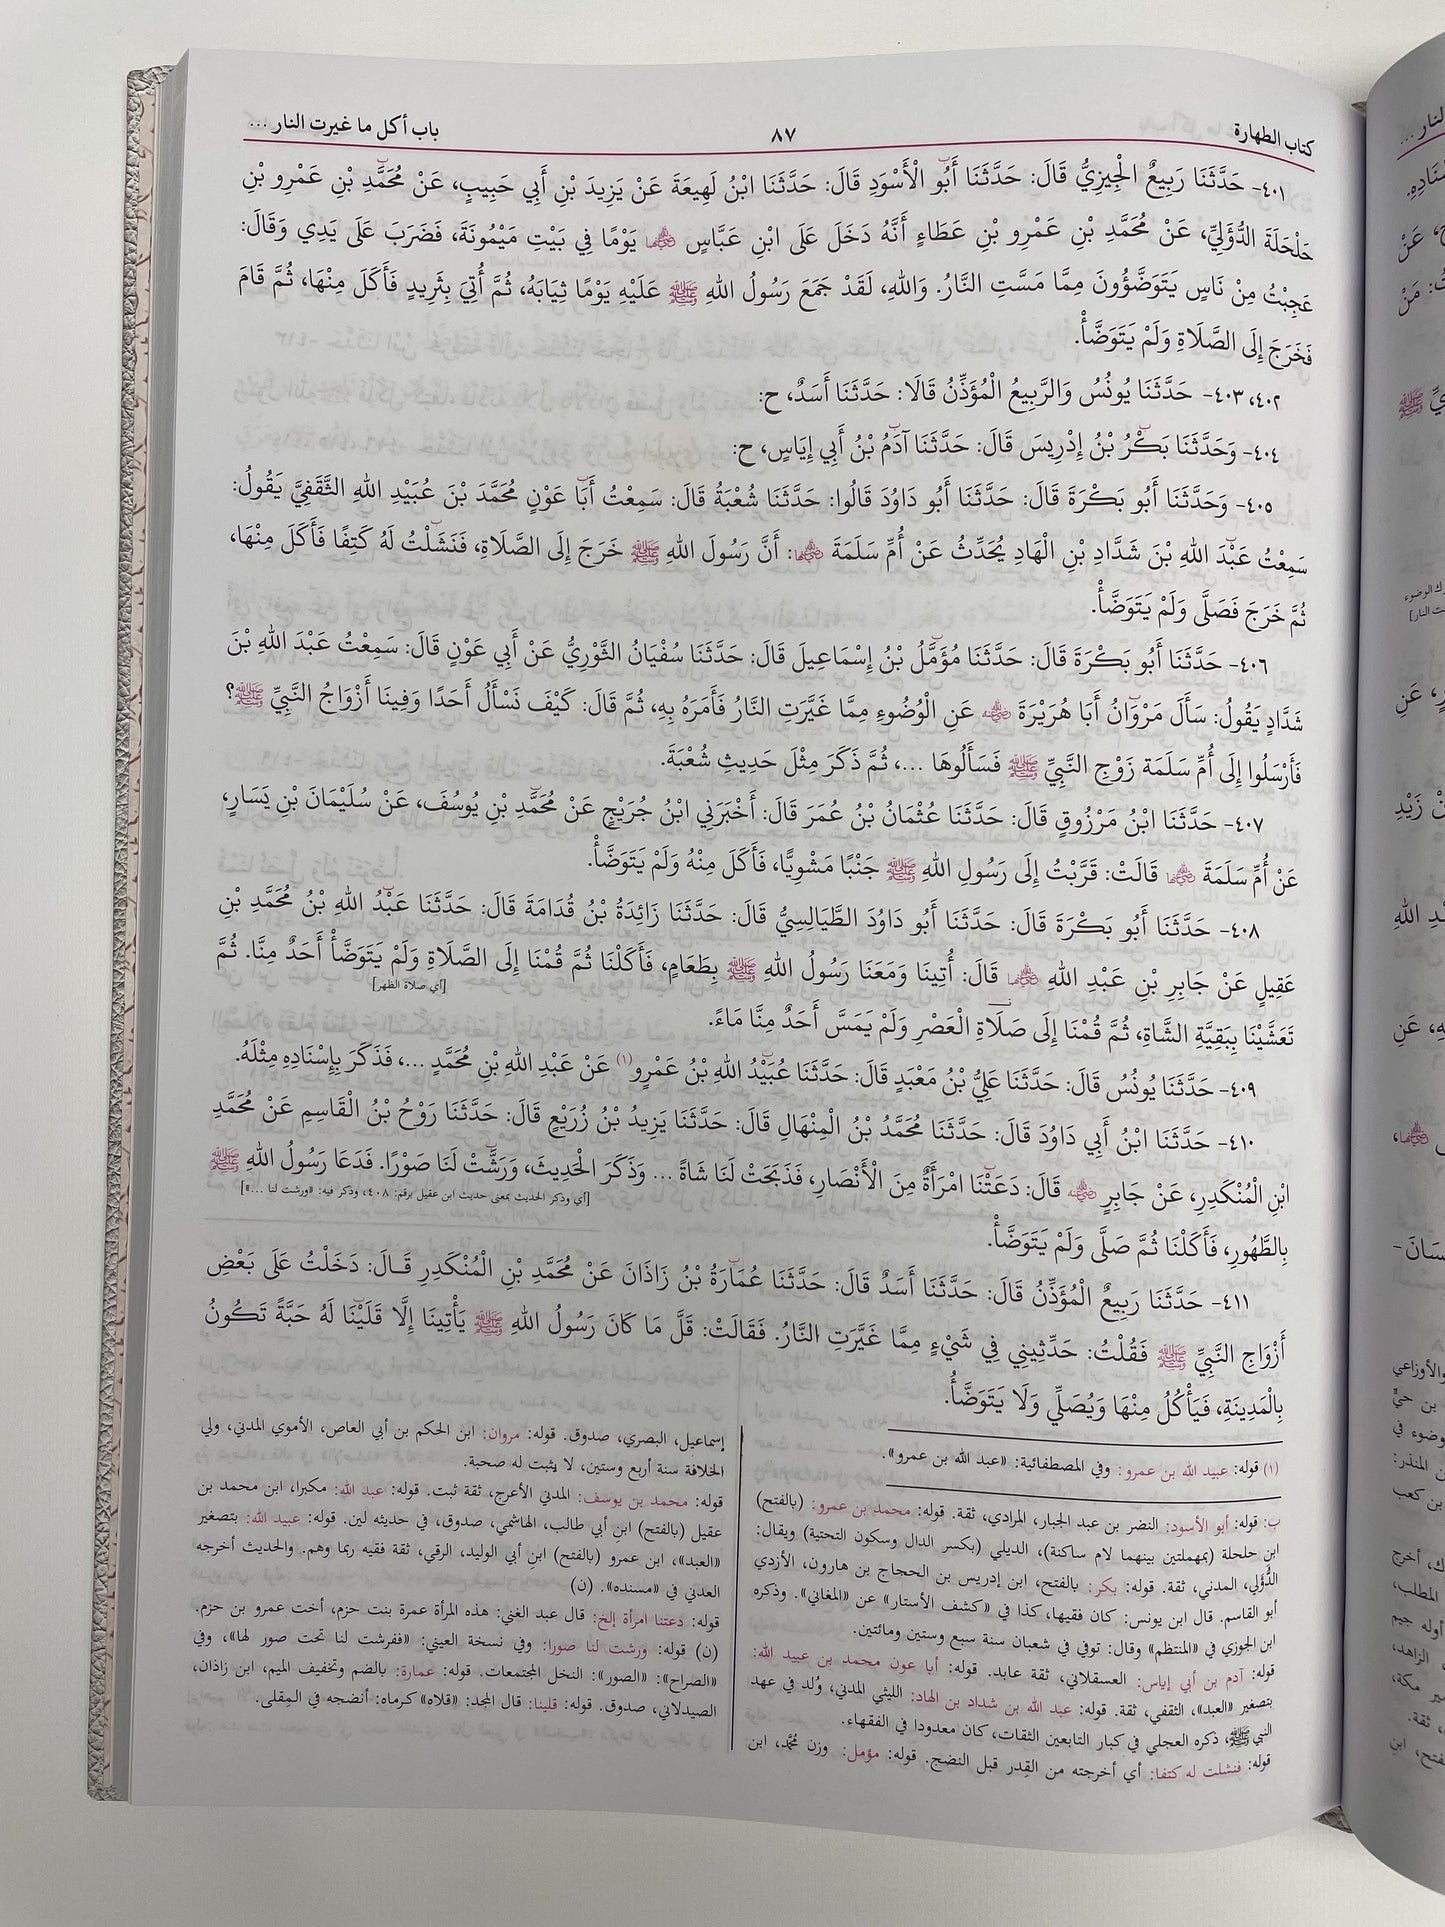 كتاب الطهارة ٨٧ باب أكل ما غيرت النار ...
٤٠١- حَدَّثَنَا رَبِيعٌ الْجِيزِيُّ قَالَ: حَدَّثَنَا أَبُو الْأَسْوَدِ قَالَ: حَدَّثَنَا ابْنُ لَهِيعَةَ عَنْ يَزِيدَ بْنِ أَبِي حَبِيبٍ، عَنْ مُحَمَّدِ بْنِ عَمْرِو بْنِ
حَلْحَلَةَ الدُّؤَلِيِّ، عَنْ مُحَمَّدِ بْنِ عَمْرِو بْنِ عَطَاءٍ أَنَّهُ دَخَلَ عَلَى ابْنِ عَبَّاسٍ ﵄ يَوْمًا فِي بَيْتِ مَيْمُونَةَ، فَضَرَبَ عَلَى يَدِي وَقَالَ:
عَجِبْتُ مِنْ نَاسٍ يَتَوَضَّؤُونَ مِمَّا مَسَّتِ النَّارُ. وَاللهِ، لَقَدْ جَمَعَ رَسُولُ اللهِ ﷺ عَلَيْهِ يَوْمًا ثِيَابَهُ، ثُمَّ أُتِيَ بِثَرِيدٍ فَأَكَلَ مِنْهَا، ثُمَّ قَامَ
فَخَرَجَ إِلَى الصَّلَاةِ وَلَمْ يَتَوَضَّأْ.
٤٠٢، ٤٠٣- حَدَّثَنَا يُونُسُ وَالرَّبِيعُ الْمُؤَذِّنُ قَالَا: حَدَّثَنَا أَسَدٌ، ح:
٤٠٤- وَحَدَّثَنَا بَكْرُ بْنُ إِدْرِيسَ قَالَ: حَدَّثَنَا آدَمُ بْنُ أَبِي إِيَاسٍ، ح:
٤٠٥- وَحَدَّثَنَا أَبُو بَكْرَةَ قَالَ: حَدَّثَنَا أَبُو دَاوُدَ قَالُوا: حَدَّثَنَا شُعْبَةُ قَالَ: سَمِعْتُ أَبَا عَوْنٍ مُحَمَّدَ بْنَ عُبَيْدِ اللهِ الثَّقَفِيَّ يَقُولُ:
سَمِعْتُ عَبْدَ اللهِ بْنَ شَدَّادِ بْنِ الْهَادِ يُحَدِّثُ عَنْ أُمِّ سَلَمَةَ ﵂: أَنَّ رَسُولَ اللهِ ﷺ خَرَجَ إِلَى الصَّلَاةِ، فَنَشَلْتُ لَهُ كَتِفًا فَأَكَلَ مِنْهَا،
ثُمَّ خَرَجَ فَصَلَّى وَلَمْ يَتَوَضَّأْ.
٤٠٦- حَدَّثَنَا أَبُو بَكْرَةَ قَالَ: حَدَّثَنَا مُؤَمَّلُ بْنُ إِسْمَاعِيلَ قَالَ: حَدَّثَنَا سُفْيَانُ الثَّوْرِيُّ عَنْ أَبِي عَوْنٍ قَالَ: سَمِعْتُ عَبْدَ اللهِ بْنَ
شَدَّادٍ يَقُولُ: سَأَلَ مَرْوَانُ أَبَا هُرَيْرَةَ ﵁ عَنِ الْوُضُوءِ مِمَّا غَيَّرَتِ النَّارُ فَأَمَرَهُ بِهِ، ثُمَّ قَالَ: كَيْفَ نَسْأَلُ أَحَدًا وَفِينَا أَزْوَاجُ النَّبِيِّ ﷺ؟
فَأَرْسَلُوا إِلَى أُمِّ سَلَمَة زَوْجِ النَّبِيِّ ﷺ فَسَأَلُوهَا ...، ثُمَّ ذَكَرَ مِثْلَ حَدِيثِ شُعْبَةَ.
٤٠٧- حَدَّثَنَا ابْنُ مَرْزُوقٍ قَالَ: حَدَّثَنَا عُثْمَانُ بْنُ عُمَرَ قَالَ: أَخْبَرَنِي ابْنُ جُرَيْجٍ عَنْ مُحَمَّدِ بْنِ يُوسُفَ، عَنْ سُلَيْمَانَ بْنِ يَسَارٍ،
عَنْ أُمِّ سَلَمَةَ ﵂ قَالَتْ: قَرَّبْتُ إِلَى رَسُولِ اللهِ ﷺ جَنْبًا مَشْوِيًّا، فَأَكَلَ مِنْهُ وَلَمْ يَتَوَضَّأْ.
٤٠٨- حَدَّثَنَا أَبُو بَكْرَةَ قَالَ: حَدَّثَنَا أَبُو دَاوُدَ الطَّيَالِسِيُّ قَالَ: حَدَّثَنَا زَائِدَةُ بْنُ قُدَامَةَ قَالَ: حَدَّثَنَا عَبْدُ اللهِ بْنُ مُحَمَّدِ بْنِ
عَقِيلٍ عَنْ جَابِرِ بْنِ عَبْدِ اللهِ ﵄ قَالَ: أُتِينَا وَمَعَنَا رَسُولُ اللهِ ﷺ بِطَعَامٍ، فَأَكَلْنَا ثُمَّ قُمْنَا إِلَى الصَّلَاةِ وَلَمْ يَتَوَضَّأْ أَحَدٌ مِنَّا. ثُمَّ
[أي صلاة الظهر]
تَعَشَّيْنَا بِبَقِيَّةِ الشَّاةِ، ثُمَّ قُمْنَا إِلَى صَلَاةِ الْعَصْرِ وَلَمْ يَمَسَّ أَحَدٌ مِنَّا مَاءً.
٤٠٩- حَدَّثَنَا يُونُسُ قَالَ: حَدَّثَنَا عَلِيُّ بْنُ مَعْبَدٍ قَالَ: حَدَّثَنَا عُبَيْدُ اللهِ بْنُ عَمْرٍو(١) عَنْ عَبْدِ اللهِ بْنِ مُحَمَّدٍ ...، فَذَكَرَ بِإِسْنَادِهِ مِثْلَهُ.
٤١٠- حَدَّثَنَا ابْنُ أَبِي دَاوُدَ قَالَ: حَدَّثَنَا مُحَمَّدُ بْنُ الْمِنْهَالِ قَالَ: حَدَّثَنَا يَزِيدُ بْنُ زُرَيْعٍ قَالَ: حَدَّثَنَا رَوْحُ بْنُ الْقَاسِمِ عَنْ مُحَمَّدِ
ابْنِ الْمُنْكَدِرِ، عَنْ جَابِرٍ ﵁ قَالَ: دَعَتْنَا امْرَأَةٌ مِنَ الْأَنْصَارِ، فَذَبَحَتْ لَنَا شَاةً ... وَذَكَرَ الْحَدِيثَ، وَرَشَّتْ لَنَا صَوْرًا. فَدَعَا رَسُولُ اللهِ ﷺ
[أي وذكر الحديث بمعنى حديث ابن عقيل برقم: ٤٠٨، وذكر فيه: «ورشت لنا ...»]
بِالطَّهُورِ، فَأَكَلْنَا ثُمَّ صَلَّى وَلَمْ يَتَوَضَّأْ.
٤١١- حَدَّثَنَا رَبِيعٌ الْمُؤَذِّنُ قَالَ: حَدَّثَنَا أَسَدٌ قَالَ: حَدَّثَنَا عُمَارَةُ بْنُ زَاذَانَ عَنْ مُحَمَّدِ بْنِ الْمُنْكَدِرِ قَـالَ: دَخَلْتُ عَلَى بَعْضِ
أَزْوَاجِ النَّبِيِّ ﷺ فَقُلْتُ: حَدِّثِينِي فِي شَيْءٍ مِمَّا غَيَّرَتِ النَّارُ. فَقَالَتْ: قَلَّ مَا كَانَ رَسُولُ اللهِ ﷺ يَأْتِينَا إِلَّا قَلَيْنَا لَهُ حَبَّةً تَكُونُ
بِالْمَدِينَةِ، فَيَأْكُلُ مِنْهَا وَيُصَلِّي وَلَا يَتَوَضَّأُ.
(١) قوله: عبيد الله بن عمرو: وفي المصطفائية: «عبد الله بن عمرو».
ب: قوله: أبو الأسود: النضر بن عبد الجبار، المرادي، ثقة. قوله: محمد بن عمرو: (بالفتح)
ابن حلحلة (بمهملتين بينهما لام ساكنة)، الديلي (بكسر الدال وسكون التحتية) ويقال:
الدُّؤَلِي، المدني، ثقة. قوله: بكر: بالفتح، ابن إدريس بن الحجاج بن هارون، الأزدي
أبو القاسم. قال ابن يونس: كان فقيها، كذا في «كشف الأستار» عن «المغاني». وذكره
ابن الجوزي في «المنتظم» وقال: توفي في شعبان سنة سبع وستين ومائتين.
قوله: آدم بن أبي إياس: العسقلاني، ثقة عابد. قوله: أبا عون محمد بن عبيد الله:
بتصغير «العبد»، الثقفي، ثقة. قوله: عبد الله بن شداد بن الهاد: الليثي المدني، وُلد في عهد
النبي ﷺ، ذكره العجلي في كبار التابعين الثقات، كان معدودا في الفقهاء.
قوله: فنشلت له كتفا: أي أخرجته من القِدر قبل النضج. قوله: مؤمل: وزن محمَّد، ابن
إسماعيل، البصري، صدوق. قوله: مروان: ابن الحكم بن أبي العاص، الأموي المدني، ولي
الخلافة سنة أربع وستين، لا يثبت له صحبة.
قوله: محمد بن يوسف: المدني الأعرج، ثقة ثبت. قوله: عبد الله: مكبرا، ابن محمد بن
عقيل (بالفتح) ابنِ أبي طالب، الهاشمي، صدوق، في حديثه لين. قوله: عبيد الله: بتصغير
«العبد»، ابن عمرو (بالفتح) ابنِ أبي الوليد، الرقي، ثقة فقيه ربما وهم. والحديث أخرجه
العدني في «مسنده». (ن)
قوله: دعتنا امرأة إلخ: قال عبد الغني: هذه المرأة عمرة بنت حزم، أخت عمرو بن حزم.
(ن) قوله: ورشت لنا صورا: وفي نسخة العيني: «ففرشت لنا تحت صور لها»، وفي
«الصراح»: «الصور»: النخل المجتمعات. قوله: عمارة: بالضم وتخفيف الميم، ابن زاذان،
الصيدلاني، صدوق. قوله: قلينا: قال المجد: «قلاه» كرماه: أنضجه في المِقلى.